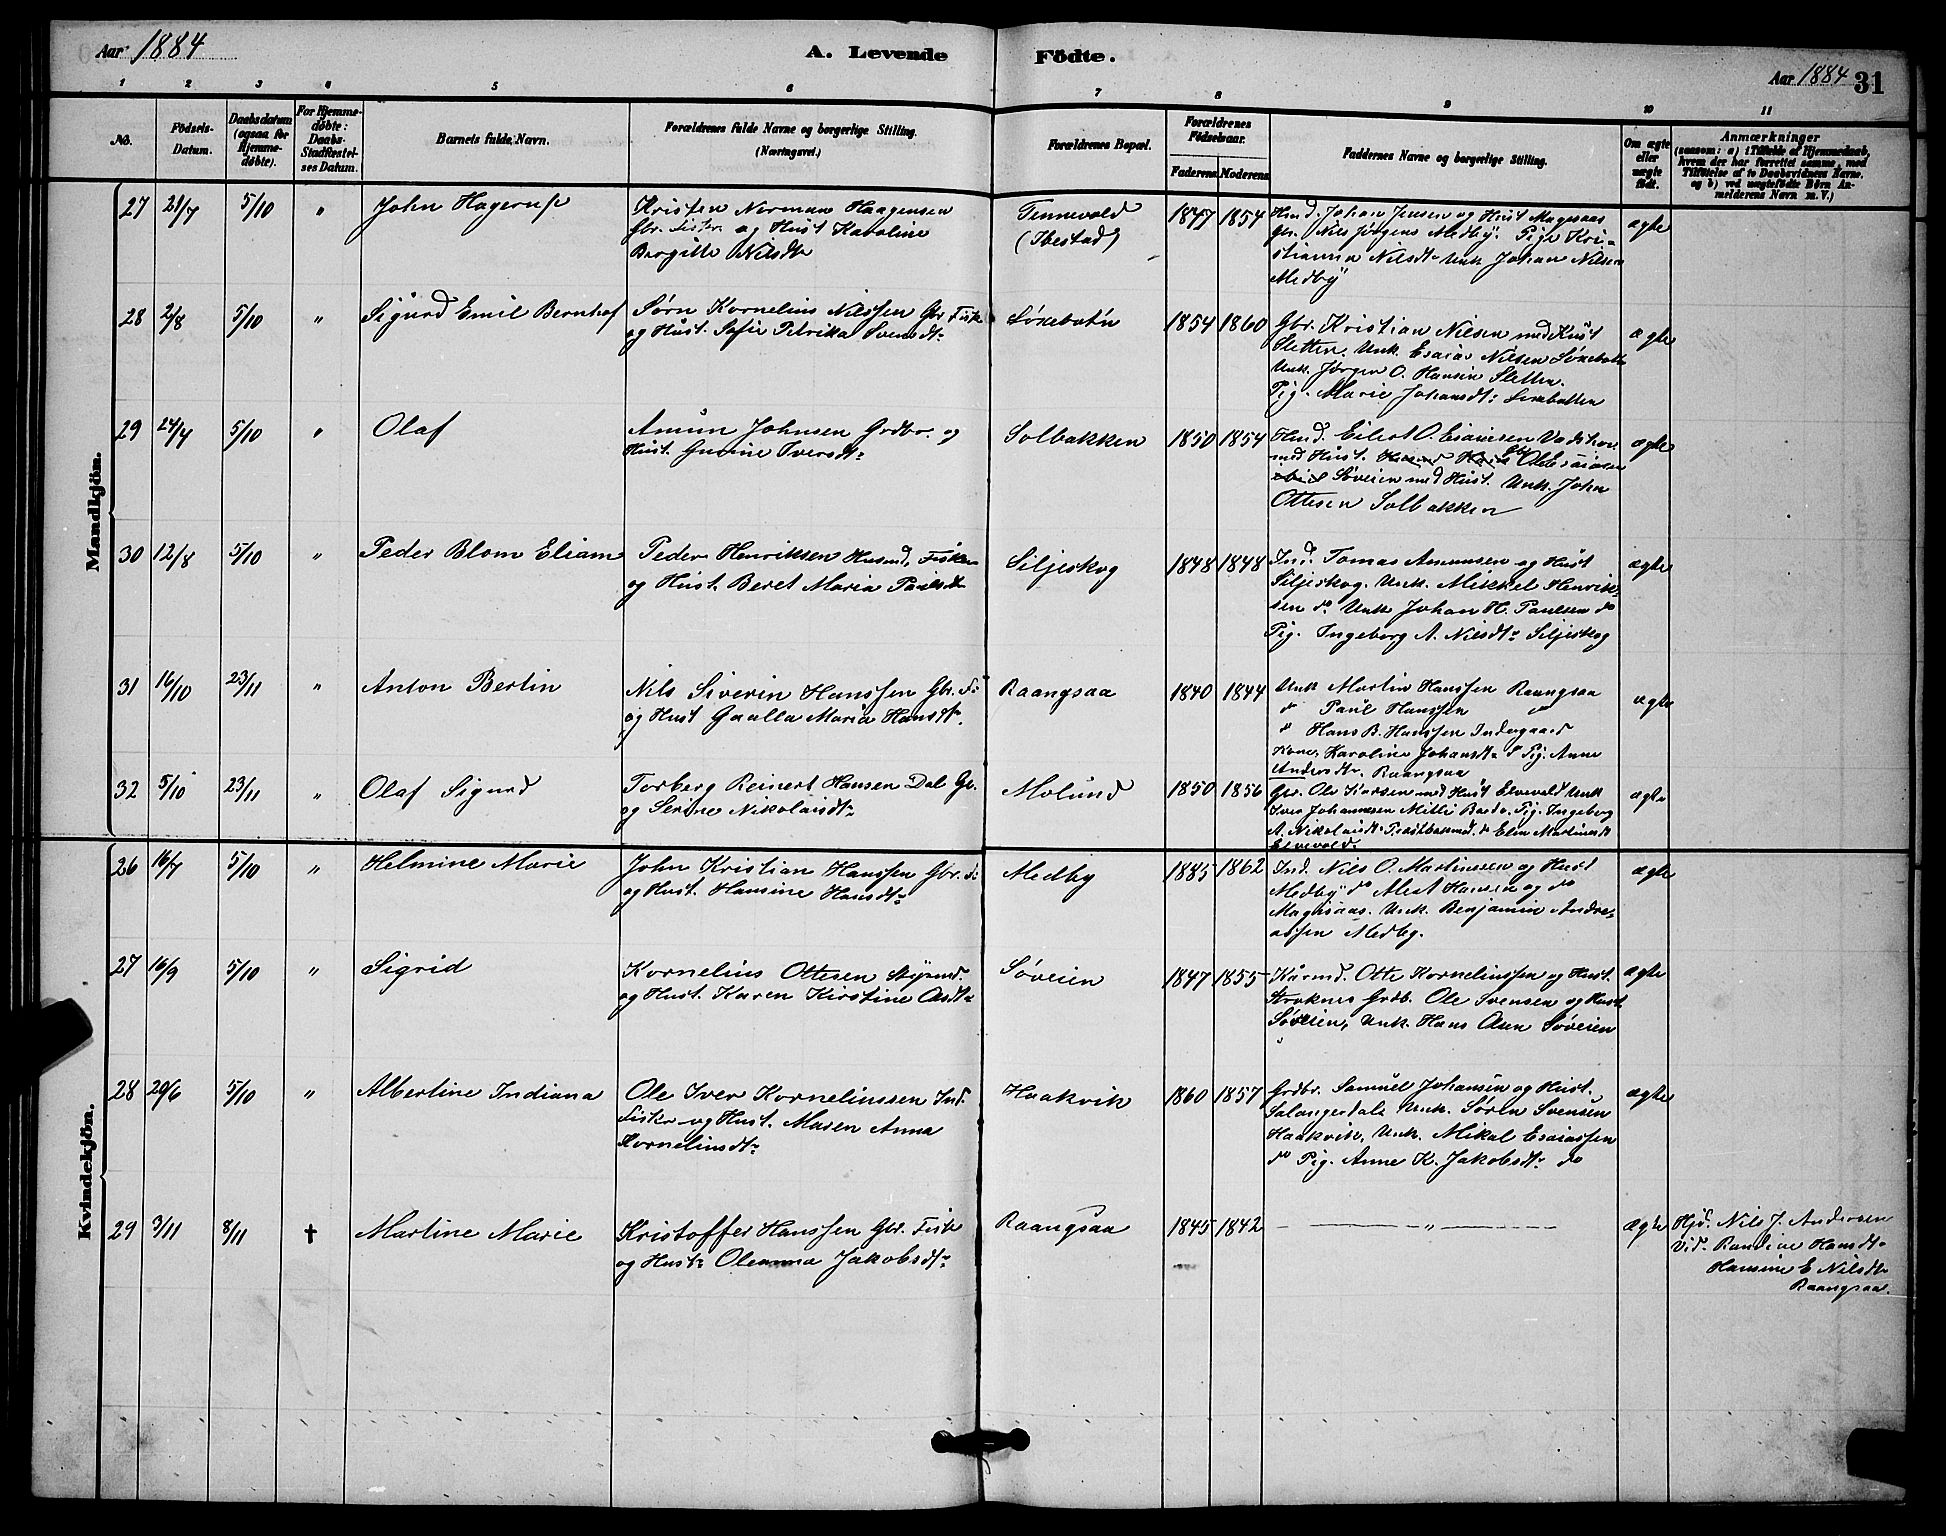 Aar 1884
A. Levende
Födte.
Aar 1884
31
1 2 3 4 5 6 7 8 9 10 11
No.
Födsels-
Datum.
Daabsdatum
(ogsaa for
Hjemme-
døbte).
For Hjemme-
døbte:
Daabs-
Stadfæstel-
ses Datum.
Barnets fulde Navn.
Forældrenes fulde Navne og borgerlige Stilling.
(Næringsvei.)
Forældrenes Bopæl.
Forældrenes
Födselsaar.
Faderens Moderens
Faddernes Navne og borgerlige Stilling.
Om ægte
eller
uægte
födt.
Anmærkninger
(saasom: a) i Tilfælde af Hjemmedaab,
hvem der har forrettet samme, med
Tilföielse af to Daabsvidners Navne,
og b) ved uægtefödte Börn An-
melderens Navn m. V.)
Mandkjön.
27 21/7 5/10 " John Hagerup
Kristen Norman Haagensen
Gbr. Fisk. og Hust Karoline
Bergitte Nilsdtr
Tennevold
(Ibestad)
1847 1854
Hmd. Johan Jensen og Hust Magesaas
Gbr. Nils Jørgens Medby. Pige Kri-
stianna Nilsdtr Unk Johan Nilsen
Medby
ægte
28 2/8 5/10 " Sigurd Emil Bernhof
Sørn Kornelius Nilssen Gbr Fisk
og Hust. Sofie Petrika Svensdtr
Søxebotn
1854 1860
Gbr. Kristian Nilsen med Hust
Sletten. Unk. Esaias Nilsen Søxebotn
Unk. Jørgen O. Hansen Sletten.
Pig. Marie Johansdtr Sørebotten
ægte
29 24/7 5/10 " Olaf
Amun Johnsen Grdbr. og
Hust. Gurine Iversdtr
Solbakken
1850 1854
Hmd. Eilert O. Esaiesen
med Hust. Gbr Ole Esaiasen
Søveien med Hust. Unk. John
Ottesen Solbakken
ægte
30 12/8 5/10 " Peder Blom Eliam
Peder Henriksen Husmd, Fisker
og Hust. Beret Maria Paulsdtr
Siljeskog
1848 1848
Ind. Tomas Amunsen og Hust
Siljeskog. Unk. Mikkel Henrik-
sen do Unk Johan H. Paulsen do
Pig. Ingeborg A. Nilsdtr Siljeskog
ægte
31 16/10 23/11 " Anton Bertin
Nils Siverin Hanssen Gbr. F:
og Hust Gualla Maria Hansdtr
Raangsaa
1840 1844
Unk Martin Hanssen Raangsaa
" Paul Hanssen "
" Hans B. Hanssen Indergaard
Kone, Karoline Johansdtr do Pig. Anne
Andersdtr. Raangsaa
ægte
32 5/10 23/11 " Olaf Sigurd
Torberg Reinert Hansen Dal Gr.
og Serine Nikolaisdtr
Molund
1850 1856
Gbr. Ole Larsen med Hust Elvevold Unk
Iver Johannesen Millie Bardo. Pig. Ingeborg
A. Nikolaisdtr Præstbakmd. do Elen Martinsdtr
Elvevold
ægte
Kvindekjön.
26 16/7 5/10 " Helmine Marie
John Kristian Hanssen Gbr. F:
og Hust. Hansine Hansdtr
Medby
1885 1862
Ind. Nils O. Martinssen og Hust
Medby do Alest Hansen og do
Magesaas. Unk. Benjamin Andre-
assen Medby.
ægte
27 16/9 5/10 " Sigrid
Kornelius Ottesen
og Hust. Karen Kirstine Olsdtr
Søveien
1847 1855
Kårmd. Otte Kornelinssen og Hust.
Stroknes Grdb. Ole Svensen og Hust
Søveien, Unk. Hans Olsen Søveien
ægte
28 29/6 5/10 " Albertine Indiana
Ole Iver Kornelinssen Ind.
Fisker og Hust. Maren Anna
Kornelinsdtr
Haakvik
1860 1857
Grdbr. Samuel Johansen og Hust.
Salangsdal Unk. Søren Svensen
Haakvik, Unk. Mikal Esaiassen
do Pig. Anne K. Jakobsdtr do
ægte
29 3/11 8/11 † Martine Marie
Kristoffer Hanssen Gbr. Fisk
og Hustr Oleanna Jakobsdtr
Raangsaa
1845 1842
— " —
ægte
Hjd. Nils J. Andersen
Vid. Randine Hansdtr
Hansine E Nilsdtr
Raangsaa.